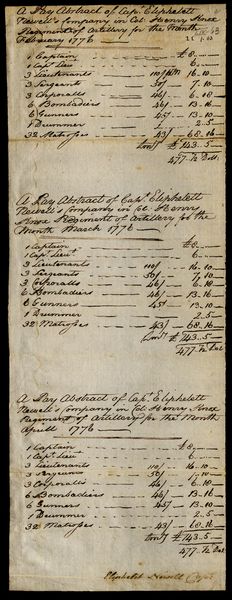 A Pay Abstract of Capt Eliphelett
Newell's Company in Col. Henry Knox
Regiment of Artillery for the Month
February 1776
1 Captain £8
1 Capt Lieut 6
3 Lieutenants 110/ 16.10
3 Sergeants 50/ 7.10
3 Corporalls 46/ 6.18
6 Bombadiers 46/ 13.16
6 Gunners 45/ 13.10
1 Drummer 2.5
32 Matroses 43/ 68.16
£143.5
477 1/2 Doll
A Pay Abstract of Capt Eliphelett
Newell's Company in Col. Henry
Knox Regiment of Artillery for the
Month March 1776
1 Captain £8
1 Capt Lieut 6
3 Lieutenants 110/ 16.10
3 Sergeants 50/ 7.10
3 Corporalls 46/ 6.18
6 Bombadiers 46/ 13.16
6 Gunners 45/ 13.10
1 Drummer 2.5
32 Matroses 43/ 68.16
£143.5
477 1/2 Dol
A Pay Abstract of Capt Eliphelett
Newell's Company in Col Henry Knox
Regiment of Artillery for the Month
Aprill 1776
1 Captain £8
1 Capt Lieut 6
3 Lieutenants 110/ 16.10
3 Sergeants 50/ 7.10
3 Corporalls 46/ 6.18
6 Bombadiers 46/ 13.16
6 Gunners 45/ 13.10
1 Drummer 2.5
32 Matroses 43/ 68.16
£143.5
477 1/2
Eliphelet Newell Capt